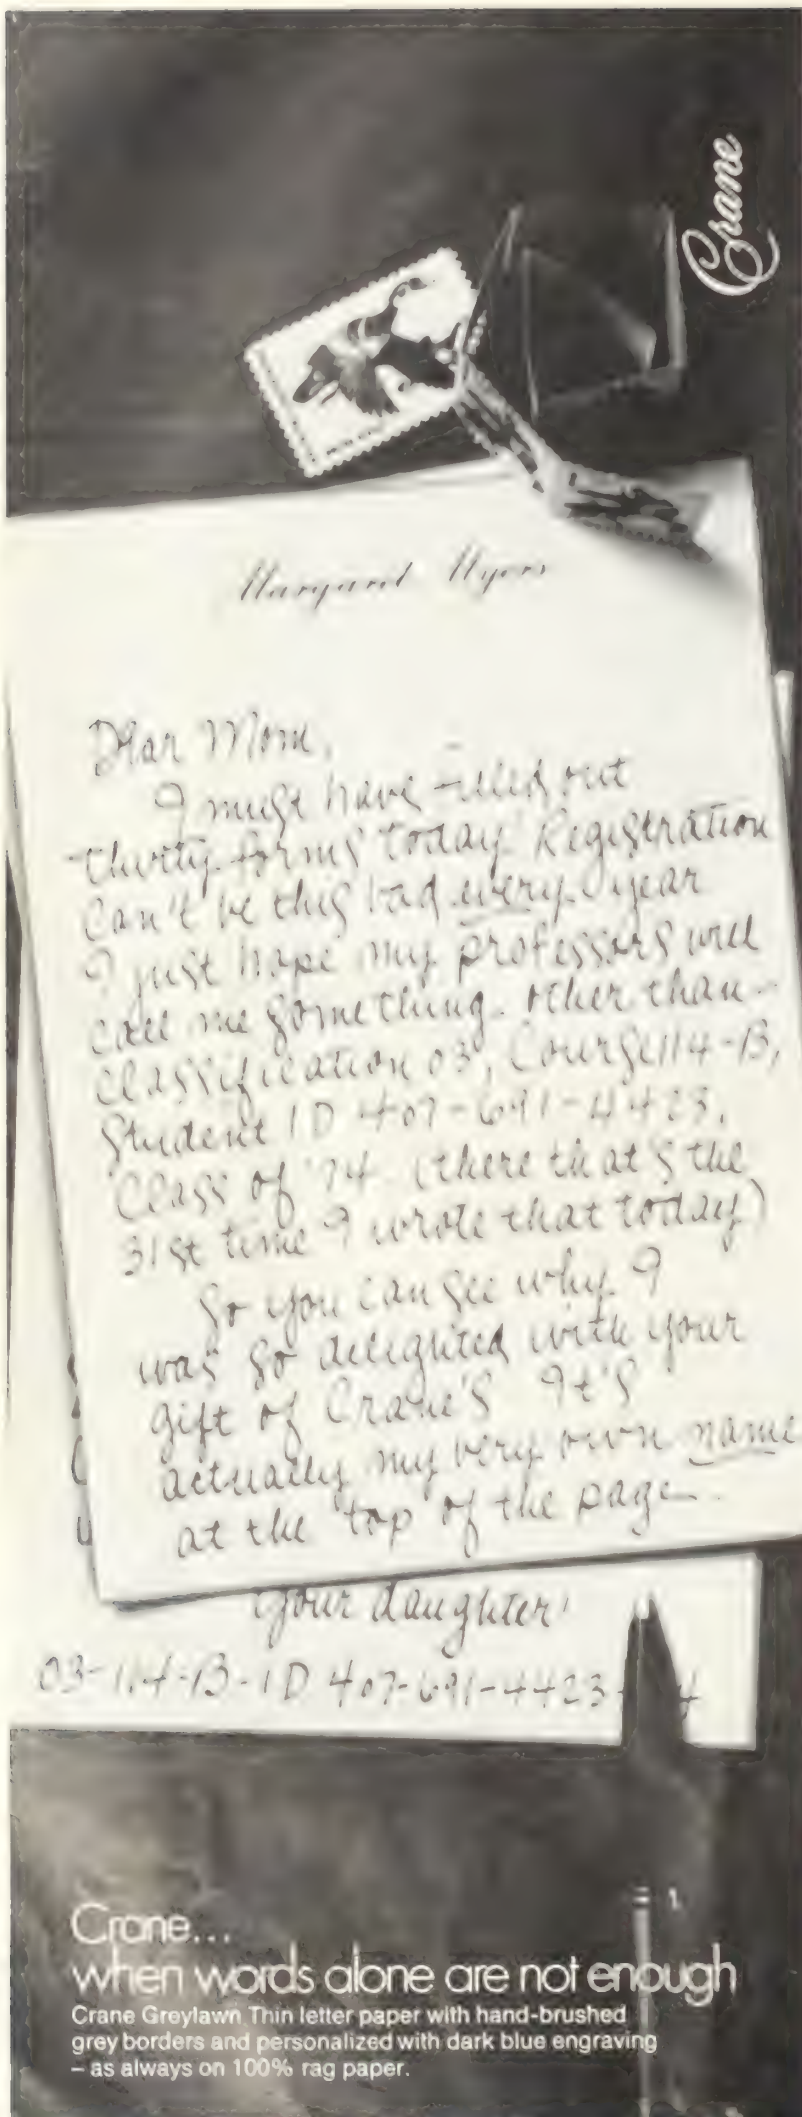 Crane
Margaret Myers
Dear Mom,
I must have filled out
thirty forms today. Registration
can't be this bad every year
I just hope my professors will
call me something other than
Classification 03, Course 114-B,
Student ID 407-691-4423,
Class of '74 (there that's the
31st time I wrote that today)
So you can see why I
was so delighted with your
gift of Crane's It's
actually my very own name
at the top of the page.
Your daughter
03-114-B-ID 407-691-4423- 4
Crane...
when words alone are not enough
Crane Greylawn Thin letter paper with hand-brushed
grey borders and personalized with dark blue engraving
– as always on 100% rag paper.